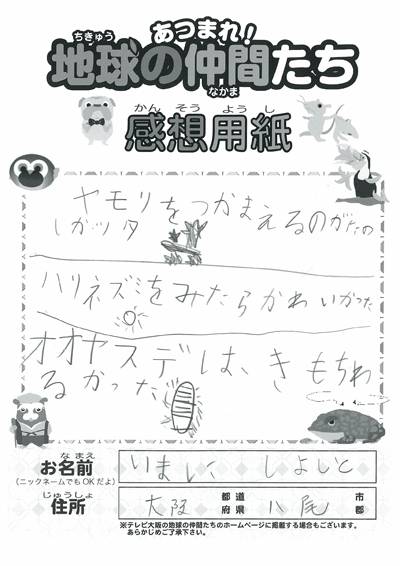 あつまれ!
ちきゅう
地球の仲間たち
なかま
かんそうようし
感想用紙
ヤモリをつかまえるのがたの
しガッタ
ハリネズミをみたらかわいかった
オオヤスデは、きもちわ
るかった
なまえ
お名前
(ニックネームでもOKだよ)
じゅうしょ
住所
大阪 都道府県 八尾 市郡
※テレビ大阪の地球の仲間たちのホームページに掲載する場合もございます。
あらかじめご了承下さい。